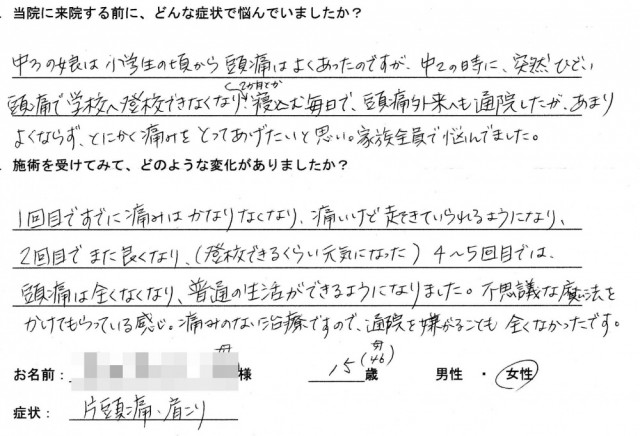 . 当院に来院する前に、どんな症状で悩んでいましたか？
中3の娘は小学生の頃から頭痛はよくあったのですが、中2の時に、突然ひどい
2か月ほど
頭痛で学校へ登校できなくなり、寝込む毎日で、頭痛外来へも通院したが、あまり
よくならず、とにかく痛みをとってあげたいと思い。家族全員で悩んでました。
. 施術を受けてみて、どのような変化がありましたか？
1回目ですでに痛みはかなりなくなり、痛いけど起きていられるようになり、
2回目でまた良くなり、(登校できるくらい元気になった) 4～5回目では、
頭痛は全くなくなり、普通の生活ができるようになりました。不思議な魔法を
かけてもらっている感じ。痛みのない治療ですので、通院を嫌がることも全くなかったです。
母 母
お名前： 様 15(46)歳 男性 ・ 女性
症状： 片頭痛、肩こり